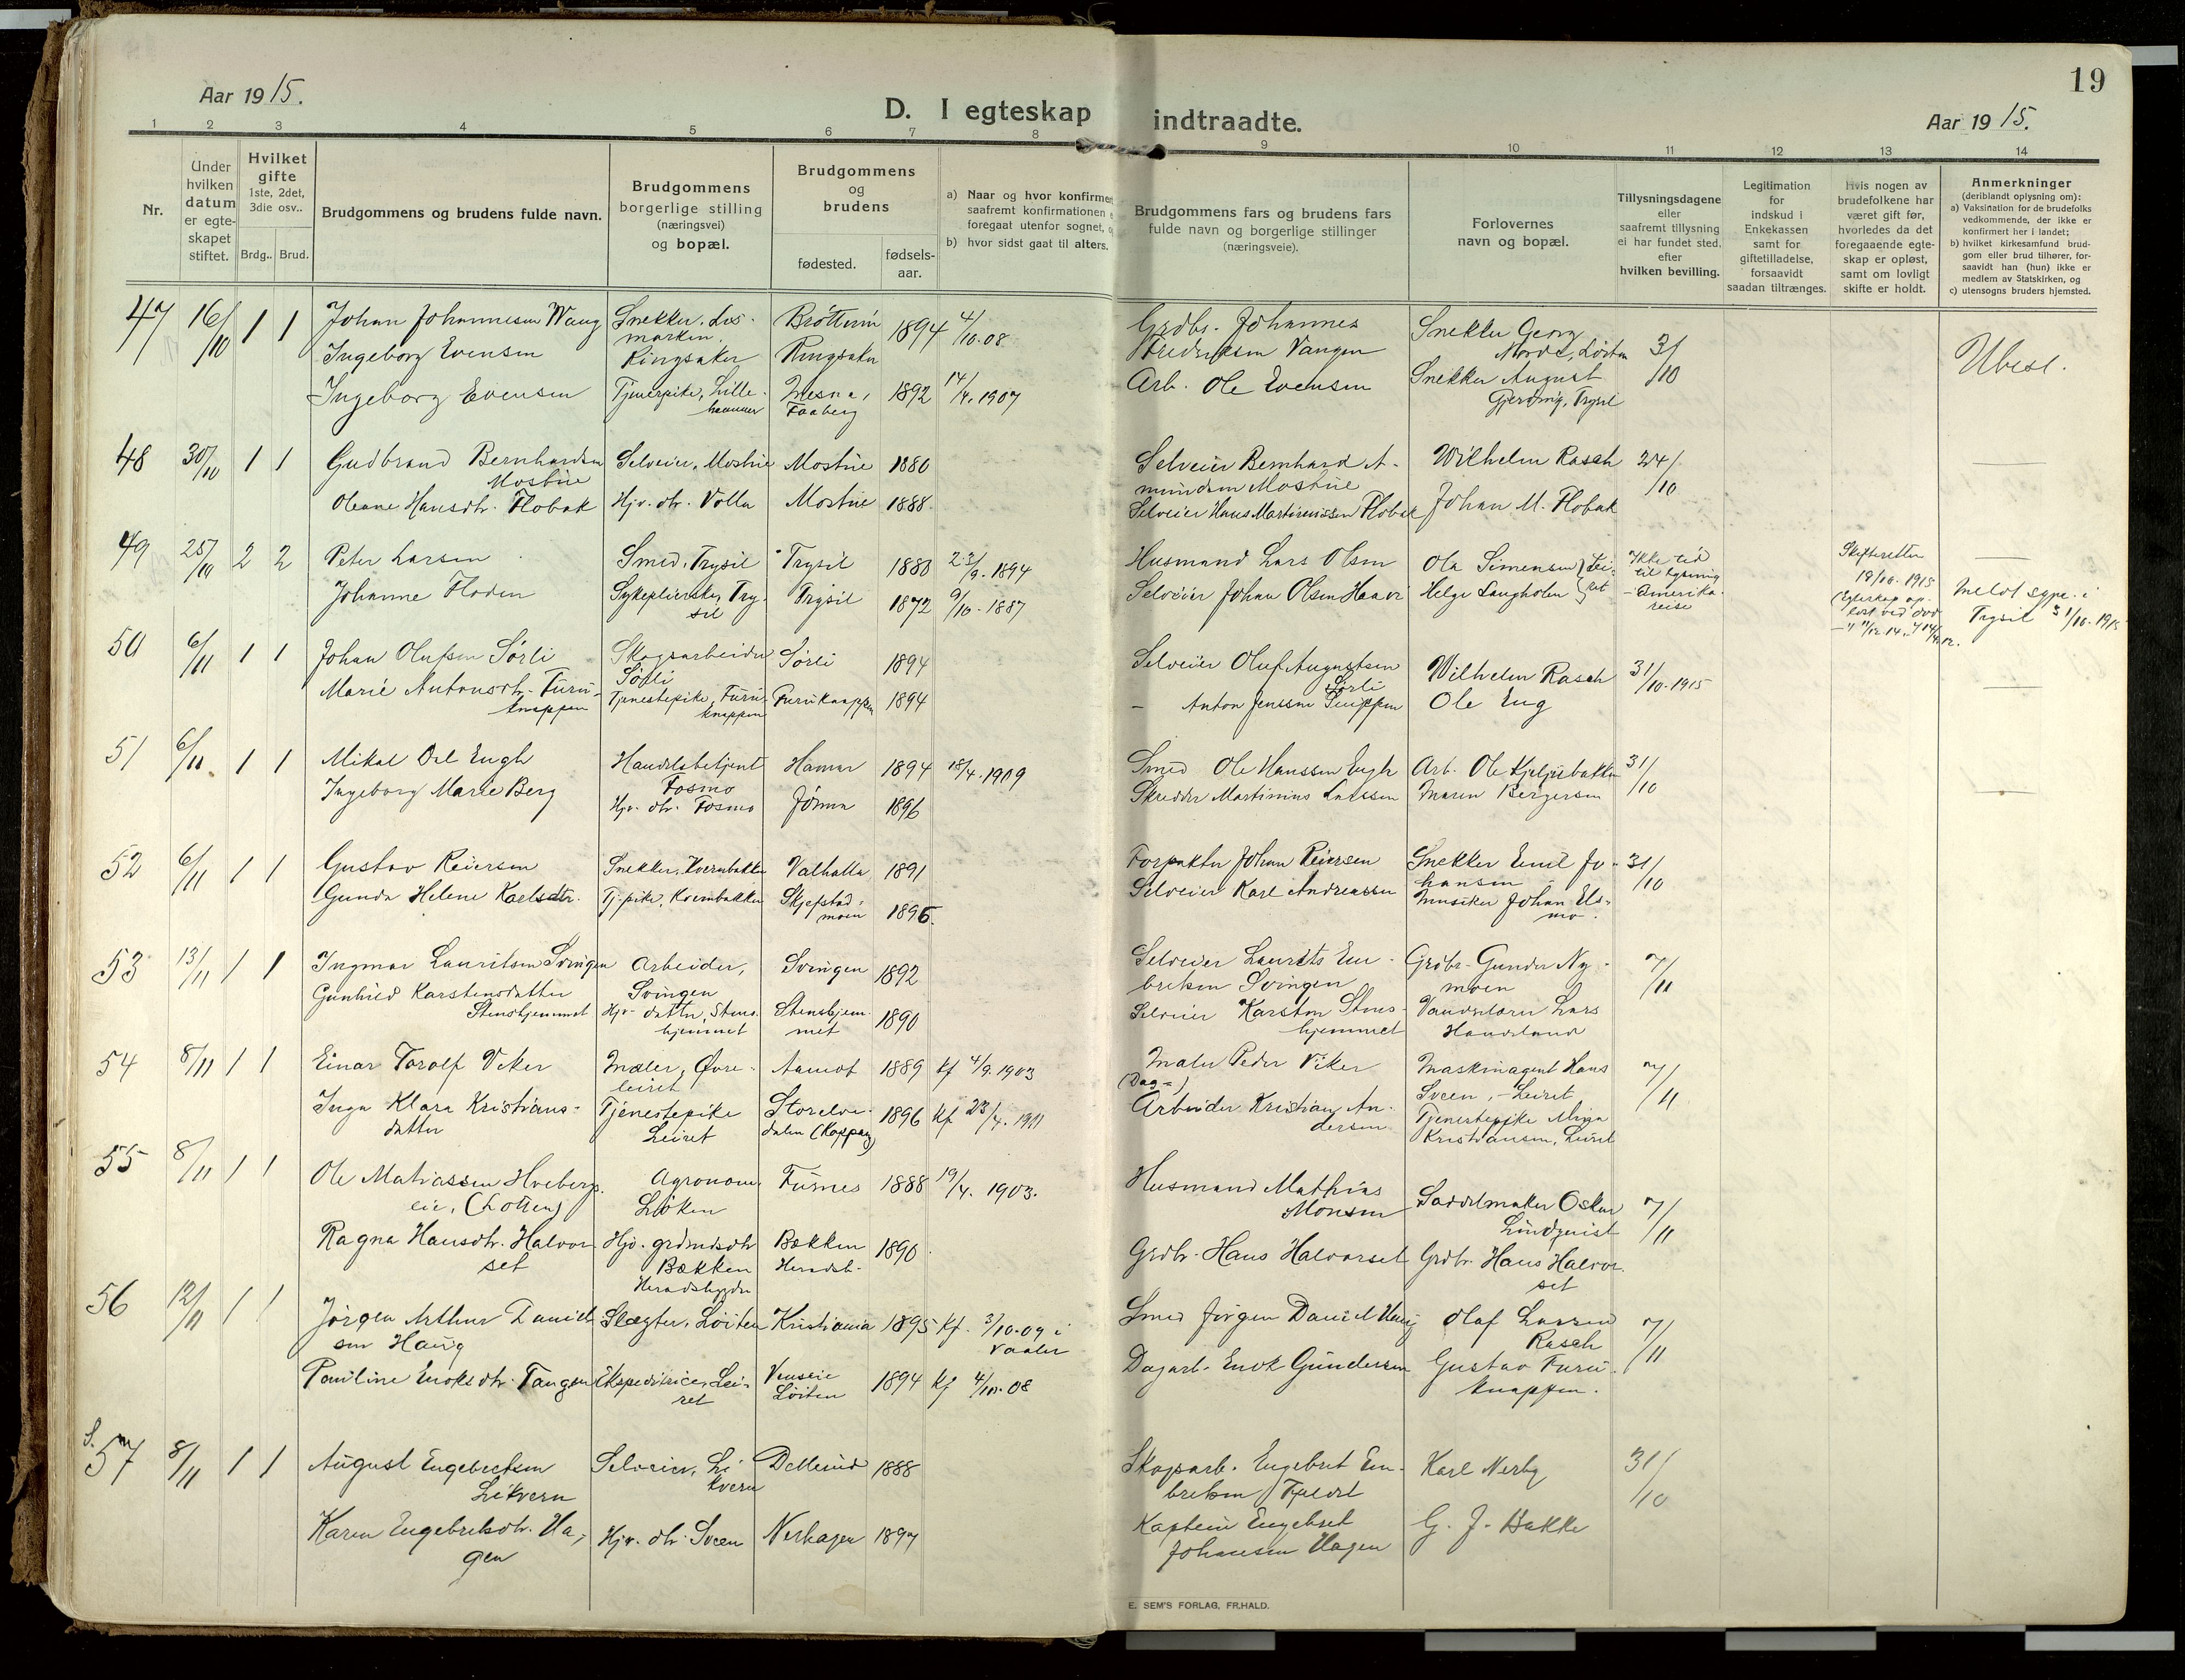 19
Aar 1915.
D. I egteskap indtraadte.
Aar 1915.
1 2 3 4 5 6 7 8 9 10 11 12 13 14
Nr.
Under hvilken datum er egteskapet stiftet.
Hvilket gifte 1ste, 2det, 3die osv..
Brdg.. Brud.
Brudgommens og brudens fulde navn.
Brudgommens borgerlige stilling (næringsvei) og bopæl.
Brudgommens og brudens
fødested.
fødsels-aar.
a) Naar og hvor konfirmert
saafremt konfirmationen
foregaat utenfor sognet,
b) hvor sidst gaat til alters.
Brudgommens fars og brudens fars
fulde navn og borgerlige stillinger
(næringsveie).
Forlovernes
navn og bopæl.
Tillysningsdagene
eller
saafremt tillysning
ei har fundet sted,
efter
hvilken bevilling.
Legitimation
for
indskud i
Enkekassen
samt for
giftetilladelse,
forsaavidt
saadan tiltrænges.
Hvis nogen av
brudefolkene har
været gift før,
hvorledes da det
foregaaende egte-
skap er opløst,
samt om lovligt
skifte er holdt.
Anmerkninger
(deriblandt oplysning om):
a) Vaksination for de brudefolks
vedkommende, der ikke er
konfirmert her i landet;
b) hvilket kirkesamfund brud-
gom eller brud tilhører, for-
saavidt han (hun) ikke er
medlem av Statskirken, og
c) utensogns bruders hjemsted.
47 16/10 1 1 Johan Johannesen Wang Snekker. Løs- Brøttum 1894 4/10.08 Grdbr. Johannes Snekker Georg 31/10
marken. Fredriksen Vangen Løiten
Ingeborg Evensen Ringsaker Ringsaker
Ingeborg Evensen Tjenerpike, Lille- Mesna, 1892 14/4.1907 Arb. Ole Evensen Snekker August
hammer Faaberg Trysil
48 30/10 1 1 Gudbrand Bernhardsen Selveier, Mostue Mostue 1880 Selveier Bernhard A- Wilhelm Rasch 24/10
Mostue mundsen Mostue
Oleane Hansdtr. Flobak Hjv. dtr. Volla Mostue 1888. Selveier Hans Martiniussen Flobak Johan M. Flobak
49 25/10 2 2 Peter Larsen Smed, Trysil Trysil 1880 23/9.1894 Husmand Lars Olsen Ola Simensen Lei- Ikke tid Skifteretten
til lysning 19/10.1915
Johanne Floden Sykepleierske, Try- Trysil 1872 9/10.1887 Selveier Johan Olsen Helge Langholen ret - Amerika- (Egteskap op- meldt i
sil reise løst ved død Trysil 31/10.1915
50 6/11 1 1 Johan Olufsen Sørli Skogsarbeider Sørli 1894 Selveier Oluf Augustsen Wilhelm Rasch 31/10.1915
Sørli Sørli
Marie Antonsdtr. Furu- Tjenestepike, Furu- Furuknappen 1894 - Anton Jenssen Ole Eng
knappen knappen
51 6/11. 1 1 Mikal Engh Handelsbetjent Hamar 1894 18/4.1909 Smed Ole Hanssen Engh Arb. Ole 31/10
Fosmo
Ingeborg Marie Berg Hjv. dtr. Fosmo 1896 Skredder Martinius Larssen Maren Bergersen
52 6/11 1 1 Gustav Reiersen Snekker, Kvernbakken Valhalla 1891 Forpakter Johan Reiersen Snekker Emil Jo- 31/10
hansen
Gunda Helene Karlsdtr. Tj.pike, Kvernbakken Skjefstad- 1896. Selveier Karl Andreassen Musiker Johan Els-
moen mo.
53 13/11 1 1 Ingmar Lauritsen Svingen Arbeider, Svingen 1892 Selveier Laurits Em- Grdbr. Gunder Ny- 7/11
Svingen bretsen Svingen moen
Gunhild Karstensdatter Hjv- datter, Stens- Stenshjem- 1890 Selveier Karsten Stens- Lars
Stenshjemmet hjemmet met hjemmet Handeland
54 8/11 1 1 Einar Torolf Viker Maler, Øvre- Aamot 1889 kf 4/9.1903 Maler Peder Viker Maskinagent Hans 7/11
leiret (Dag-) Sveen, - Leiret
Inga Klara Kristians- Tjenestepike Storelve- 1896 kf 23/4.1911 Arbeider Kristian An- Tjenestepike
datter Leiret dalen (Koppang) dersen Kristiansen, Leiret
55 8/11 1 1 Ole Matiassen Hveberg- Agronom Furnes 1888 19/4.1903. Husmand Mathias Saddelmaker Oskar 7/11
eie, (Løiten) Løken Monsen Lindquist
Ragna Hansdtr. Halvor- Hjv. grdmdsdtr Bækken 1890. Grdbr. Hans Halvorset Grdbr. Hans Halvor-
set Bækken Heradsb. set
Heradsbygden
56 12/11 1 1 Jørgen Arthur Daniel- Slagter, Løiten Kristiania 1895 kf. 3/10.09 i Smed Jørgen Daniel Haug Olaf Larsen 7/11
sen Haug Vaaler Rasch
Pauline Enoksdtr. Tangen Ekspeditrice, Lei- 1894 kf 4/10.08 Dagarb. Enok Gundersen Gustav Furu-
ret Løiten knappen.
57 8/11 1 1 August Engebretsen Selveier, Li- 1888 Skogsarb. Engebret Em- Karl Nerby 31/10
Likvern kvern bretsen
Karen Engebretsdtr. Ha- Hjv. dtr. Sveen Nerhagen 1897 Kaptein Engebret G. J. Bakke
gen Johansen Hagen
E. SEM'S FORLAG, FR.HALD.